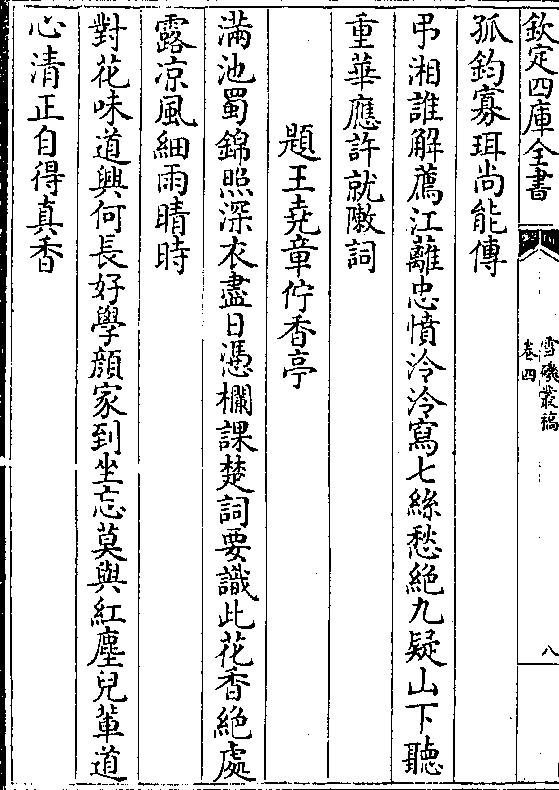 欽定四庫全書
雪磯叢稿
卷四
八
孤鈞寡珥尚能傳
弔湘誰解薦江蘺忠憤泠泠寫七絲愁絶九疑山下聽
重華應許就敶詞
題王堯章佇香亭
滿池蜀錦照深衣盡日憑欄課楚詞要識此花香絶處
露凉風細雨晴時
對花味道興何長好學顔家到坐忘莫與紅塵兒軰道
心清正自得真香